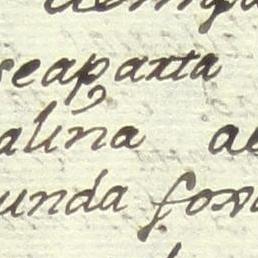 seaparta
alina ae
unda for